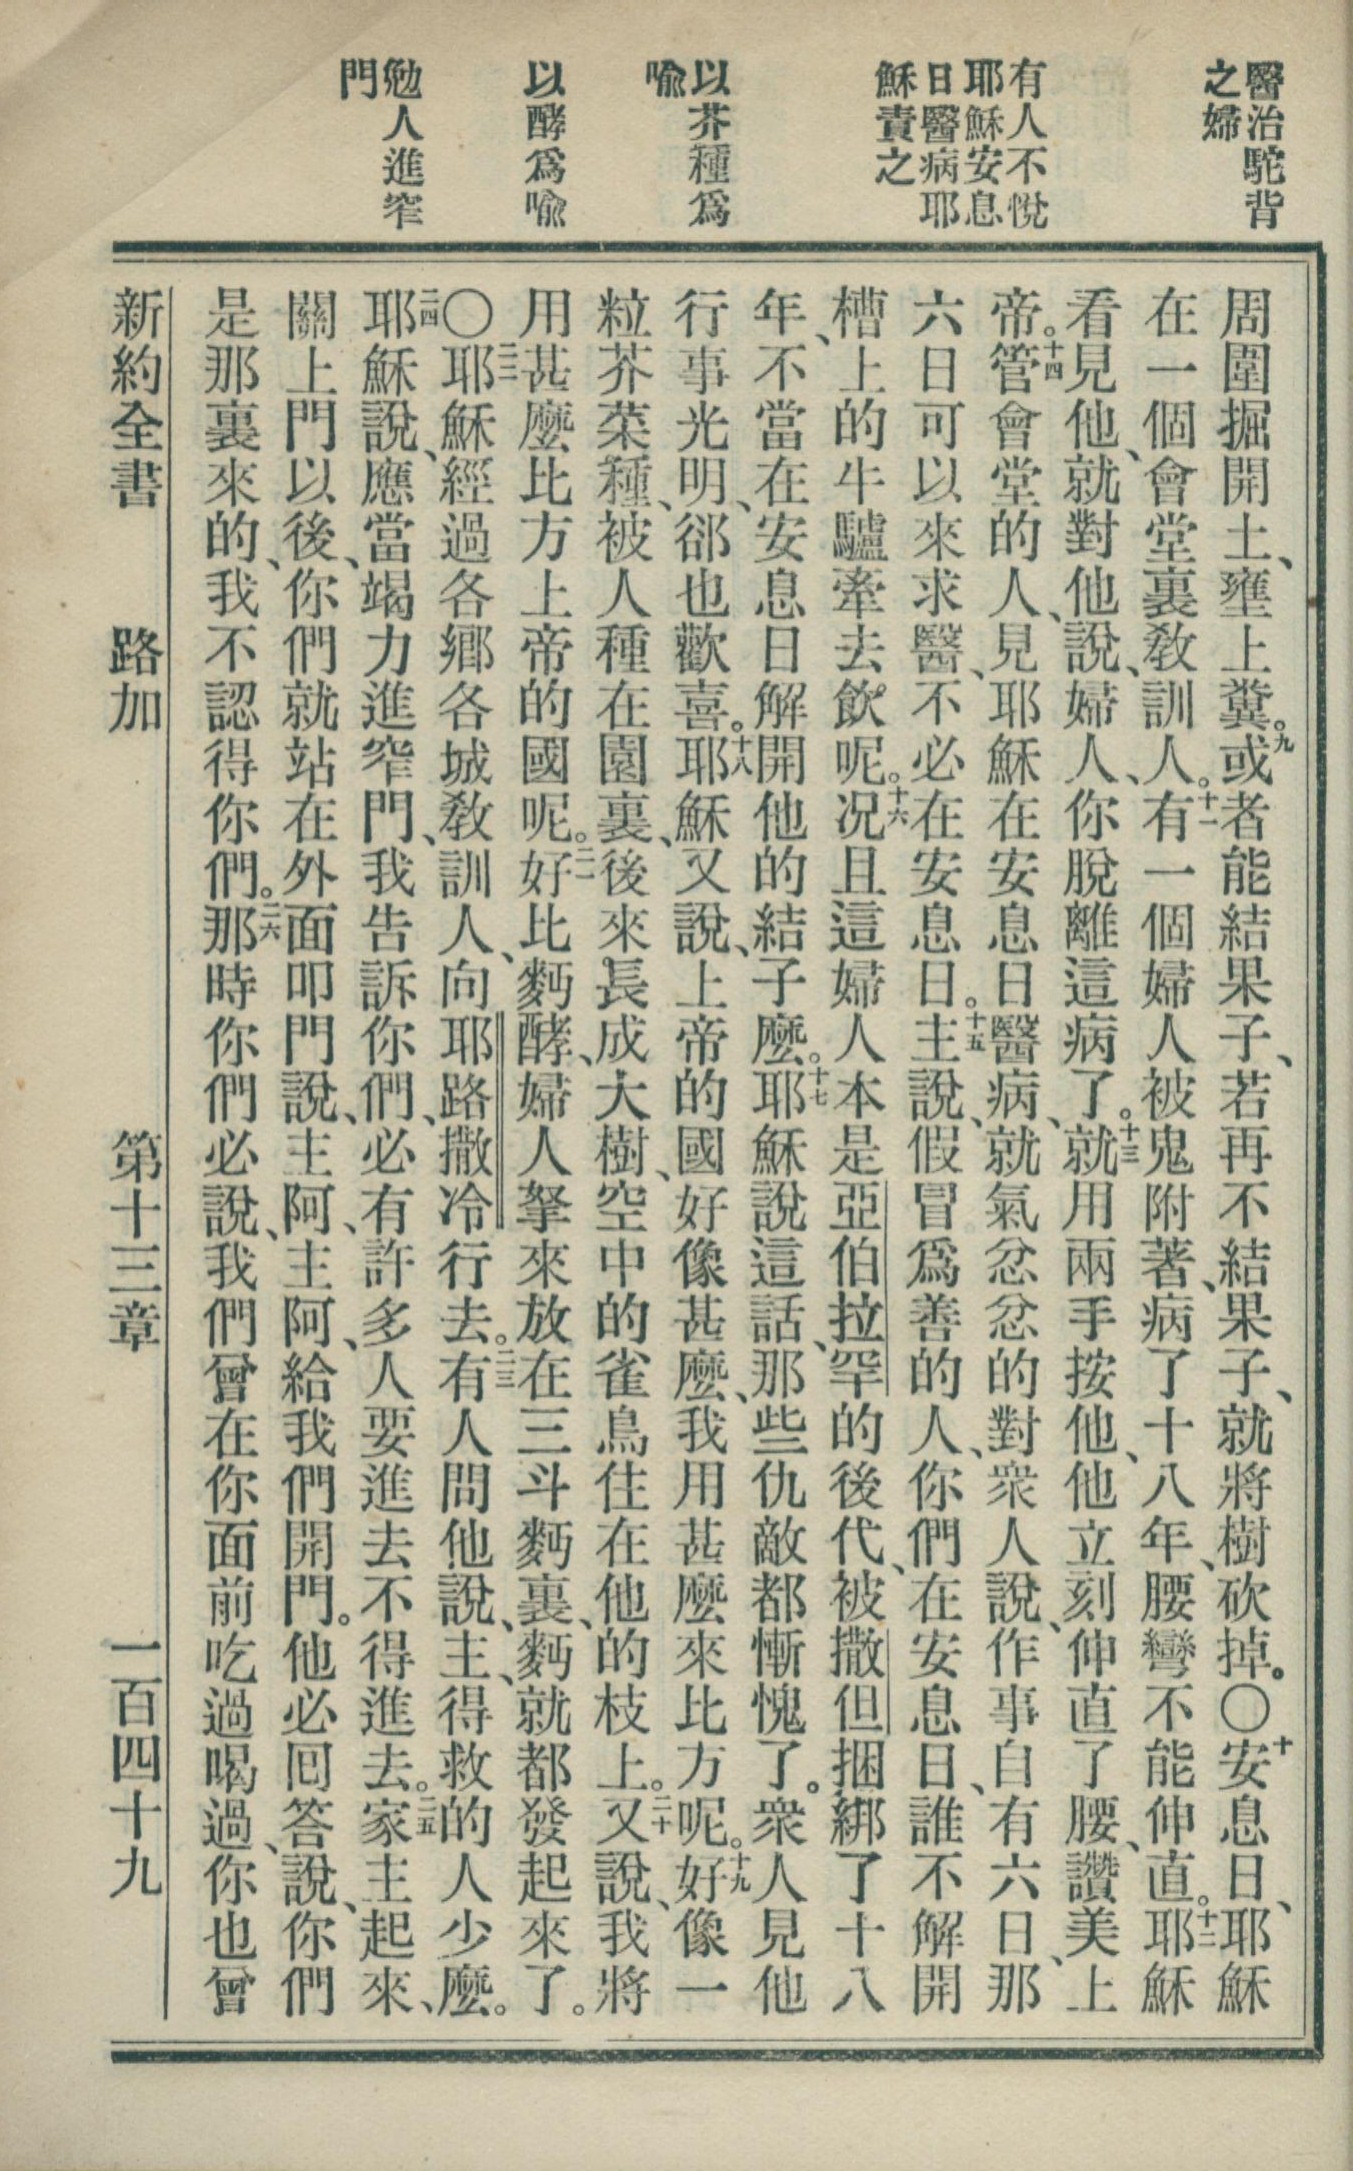 醫治駝背
之婦
有人不悅
耶穌安息
日醫病耶
穌責之
以芥種爲
喩
以酵爲喩
勉人進窄
門
周圍掘開土、壅上糞。九或者能結果子、若再不結果子、就將樹砍掉。〇十安息日、耶穌
在一個會堂裏敎訓人。十一有一個婦人被鬼附著、病了十八年、腰彎不能伸直。十二耶穌
看見他、就對他說、婦人、你脫離這病了。十三就用兩手按他、他立刻伸直了腰、讚美上
帝。十四管會堂的人、見耶穌在安息日醫病、就氣忿忿的對衆人說、作事自有六日、那
六日可以來求醫、不必在安息日。十五主說、假冒爲善的人、你們在安息日、誰不解開
槽上的牛驢牽去飮呢。十六况且這婦人本是亞伯拉罕的後代、被撒但捆綁了十八
年、不當在安息日解開他的結子麼。十七耶穌說這話、那些仇敵都慚愧了。衆人見他
行事光明、郤也歡喜。十八耶穌又說、上帝的國好像甚麼、我用甚麼來比方呢。十九好像一
粒芥菜種、被人種在園裏、後來長成大樹、空中的雀鳥住在他的枝上。二十又說、我將
用甚麼比方上帝的國呢。二一好比麪酵、婦人拏來放在三斗麪裏、麪就都發起來了。
〇二二耶穌經過各鄉各城敎訓人、向耶路撒冷行去。二三有人問他說、主、得救的人少麼。
二四耶穌說、應當竭力進窄門、我告訴你們、必有許多人要進去不得進去。二五家主起來、
關上門以後、你們就站在外面叩門說、主阿、主阿、給我們開門。他必回答說、你們
是那裏來的、我不認得你們。二六那時你們必說、我們曾在你面前吃過喝過、你也曾
新約全書 路加 第十三章 一百四十九